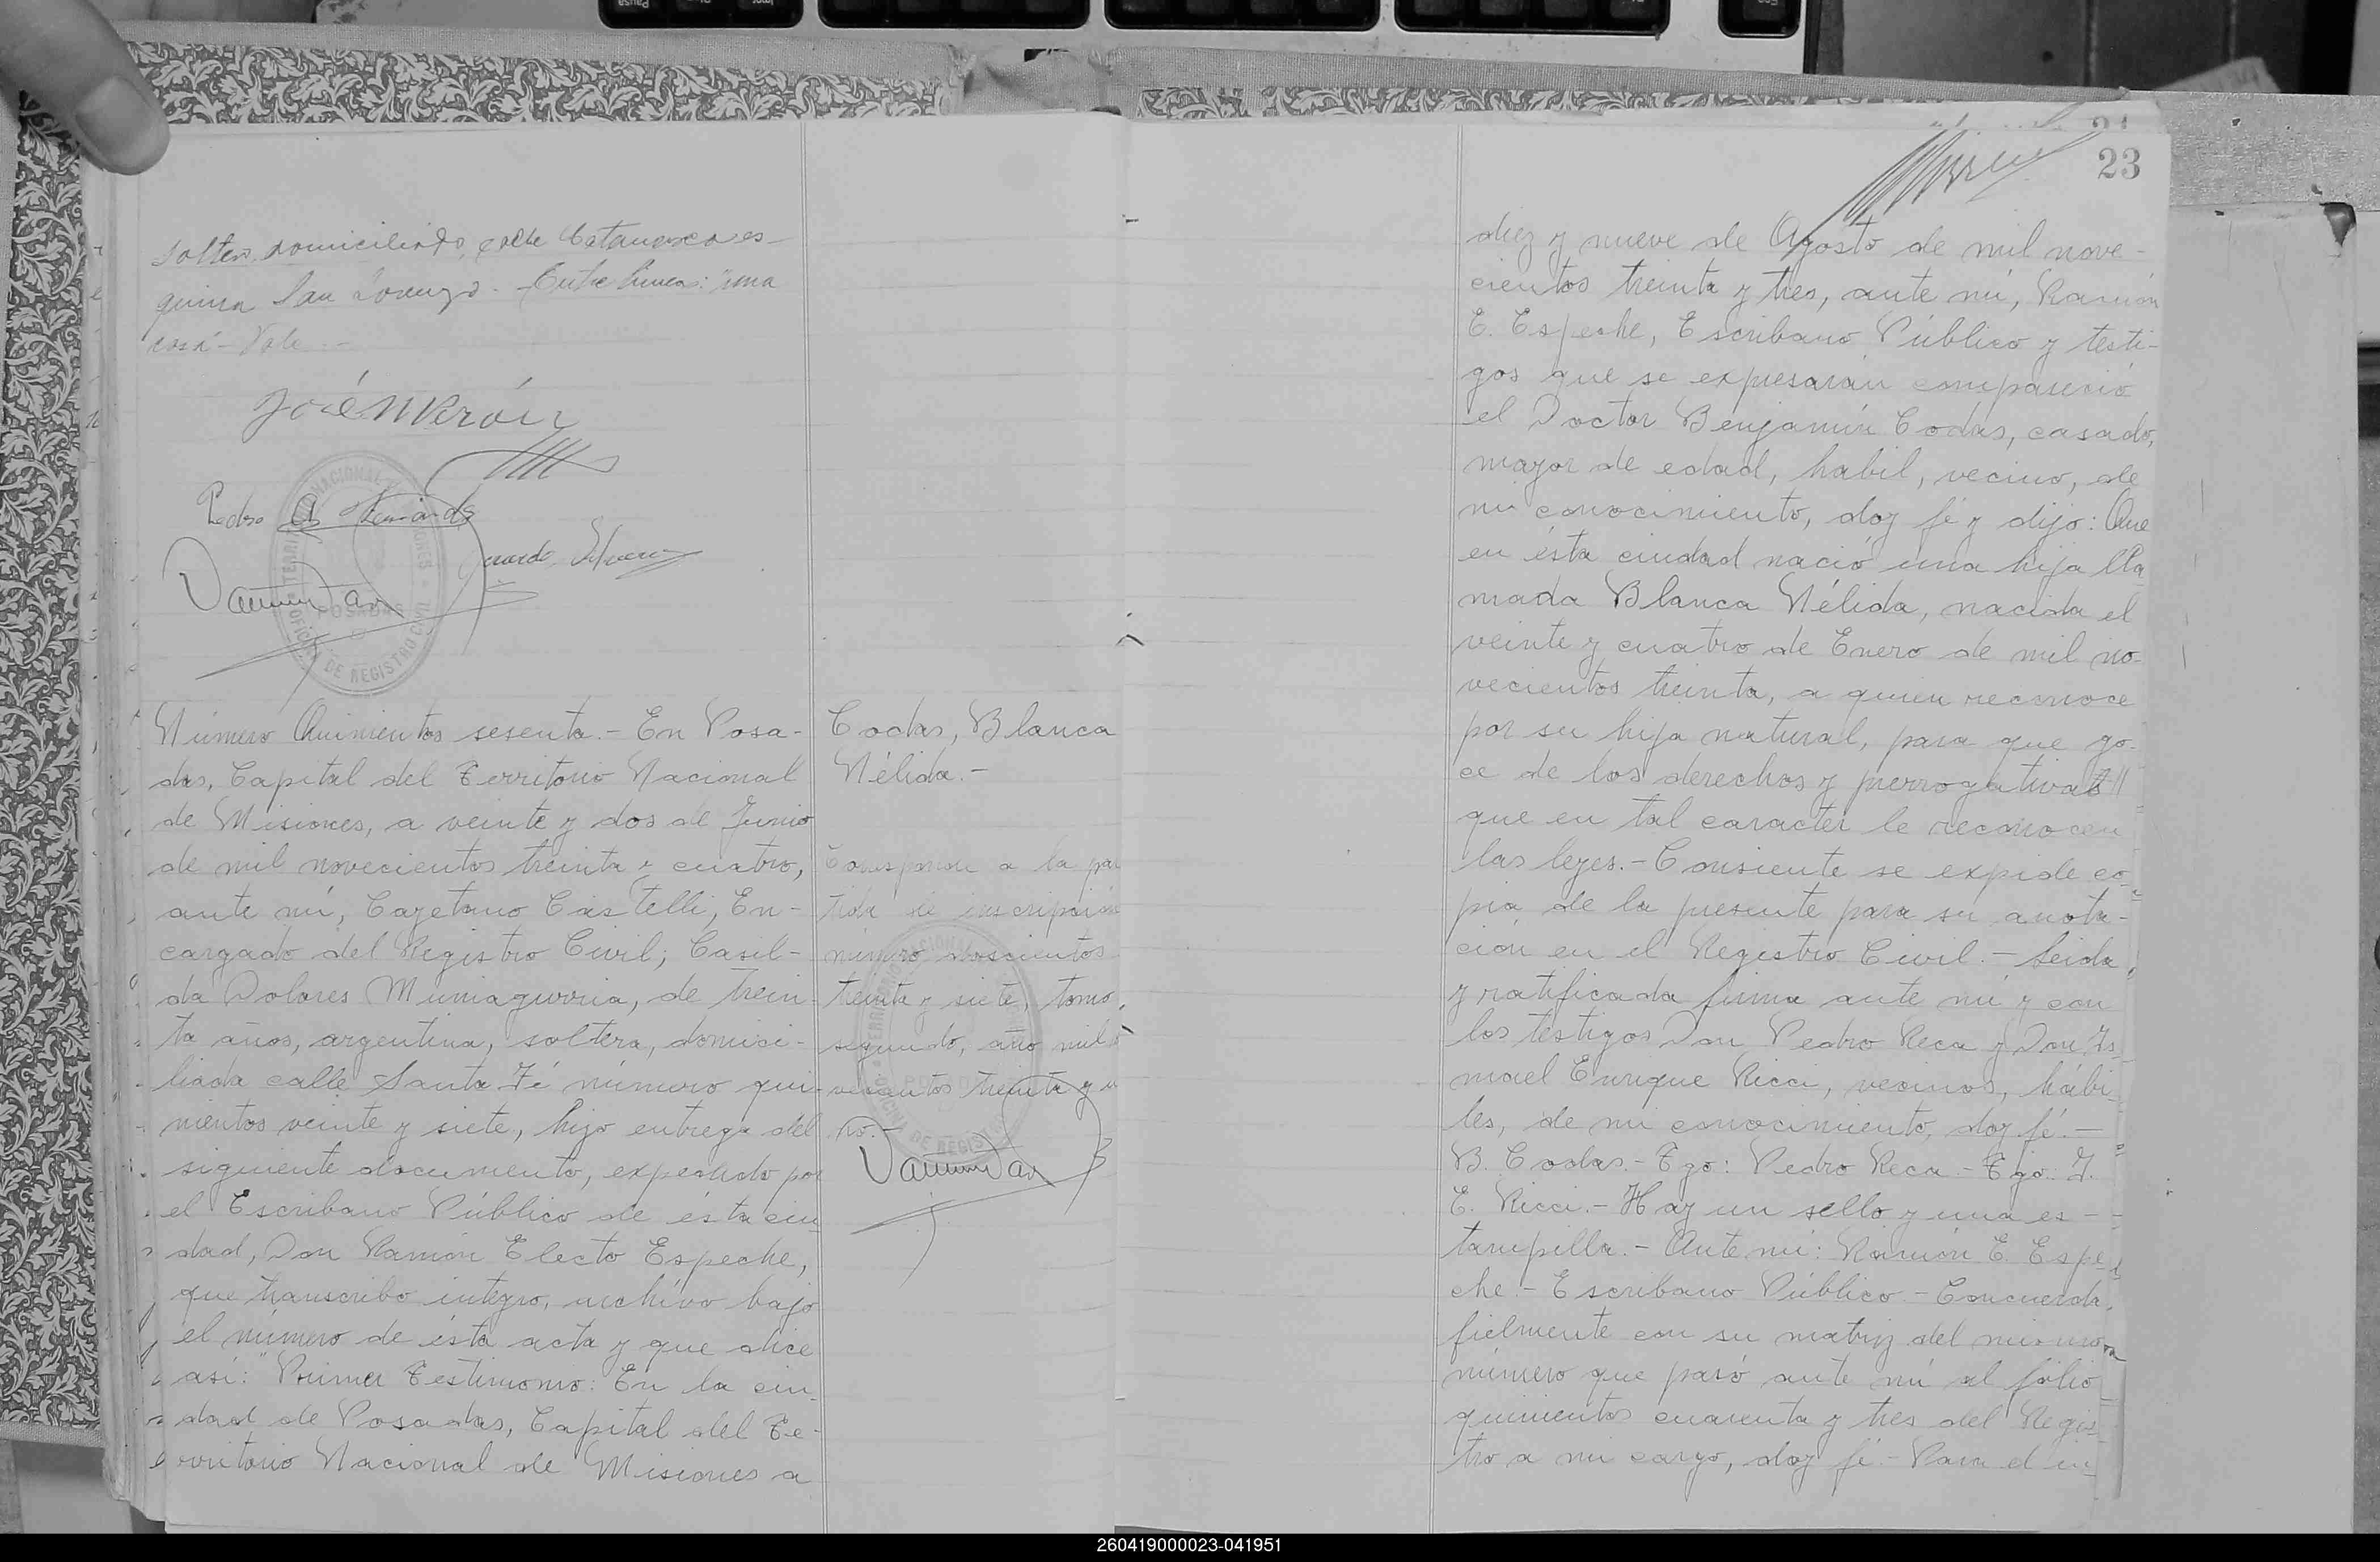 soltero, domiciliado, calle Catamarca es-
quina San Lorenzo. - Entre lineas: "una
casa" - Vale. -
José M Verón
Pedro A Fernandez
Gerardo
POSADAS
OFICINA DE REGISTRO CIVIL
Número Quinientos sesenta. - En Posa-
das, Capital del Territorio Nacional
de Misiones, a veinte y dos de Junio
de mil novecientos treinta y cuatro,
ante mí, Cayetano Castelli, En-
cargado del Registro Civil; Casil-
da Dolores Muniagurria, de trein-
ta años, argentina, soltera, domici-
liada calle Santa Fé número qui-
nientos veinte y siete, hizo entrega del
siguiente documento, expedido por
el Escribano Público de ésta ciu-
dad, Don Ramón Electo Espeche,
que transcribo integro, archivo bajo
el número de ésta acta y que dice
así: "Primer Testimonio: En la ciu-
dad de Posadas, Capital del Te-
rritorio Nacional de Misiones a
Codas, Blanca
Nélida. -
Corresponde a la par
tida de inscripción
número doscientos
treinta y siete, tomo
segundo, año mil no
vecientos treinta y u
no. -
23
diez y nueve de Agosto de mil nove-
cientos treinta y tres, ante mí, Ramón
E. Espeche, Escribano Público y testi-
gos que se expresarán compareció
el Doctor Benjamín Codas, casado,
mayor de edad, habil, vecino, de
mi conocimiento, doy fé y dijo: Que
en ésta ciudad nació una hija lla
mada Blanca Nélida, nacida el
veinte y cuatro de Enero de mil no-
vecientos treinta, a quien reconoce
por su hija natural, para que go-
ce de los derechos y prerrogativas
que en tal caracter le reconocen
las leyes. - Consiente se expide co-
pia de la presente para su anota-
ción en el Registro Civil. - Leida
y ratificada firma ante mí y con
los testigos Don Pedro Reca y Don Is-
mael Enrique Ricci, vecinos, hábi-
les, de mi conocimiento, doy fé. -
B. Codas. - Tgo: Pedro Reca. - Tgo: I.
E. Ricci. - Hay un sello y una es-
tampilla. - Ante mí: Ramón E. Espe-
che. - Escribano Público. - Concuerda
fielmente con su matriz del mismo
número que pasó ante mí al folio
quinientos cuarenta y tres del Regis-
tro a mi cargo, doy fé. - Para el in-
260419000023-041951